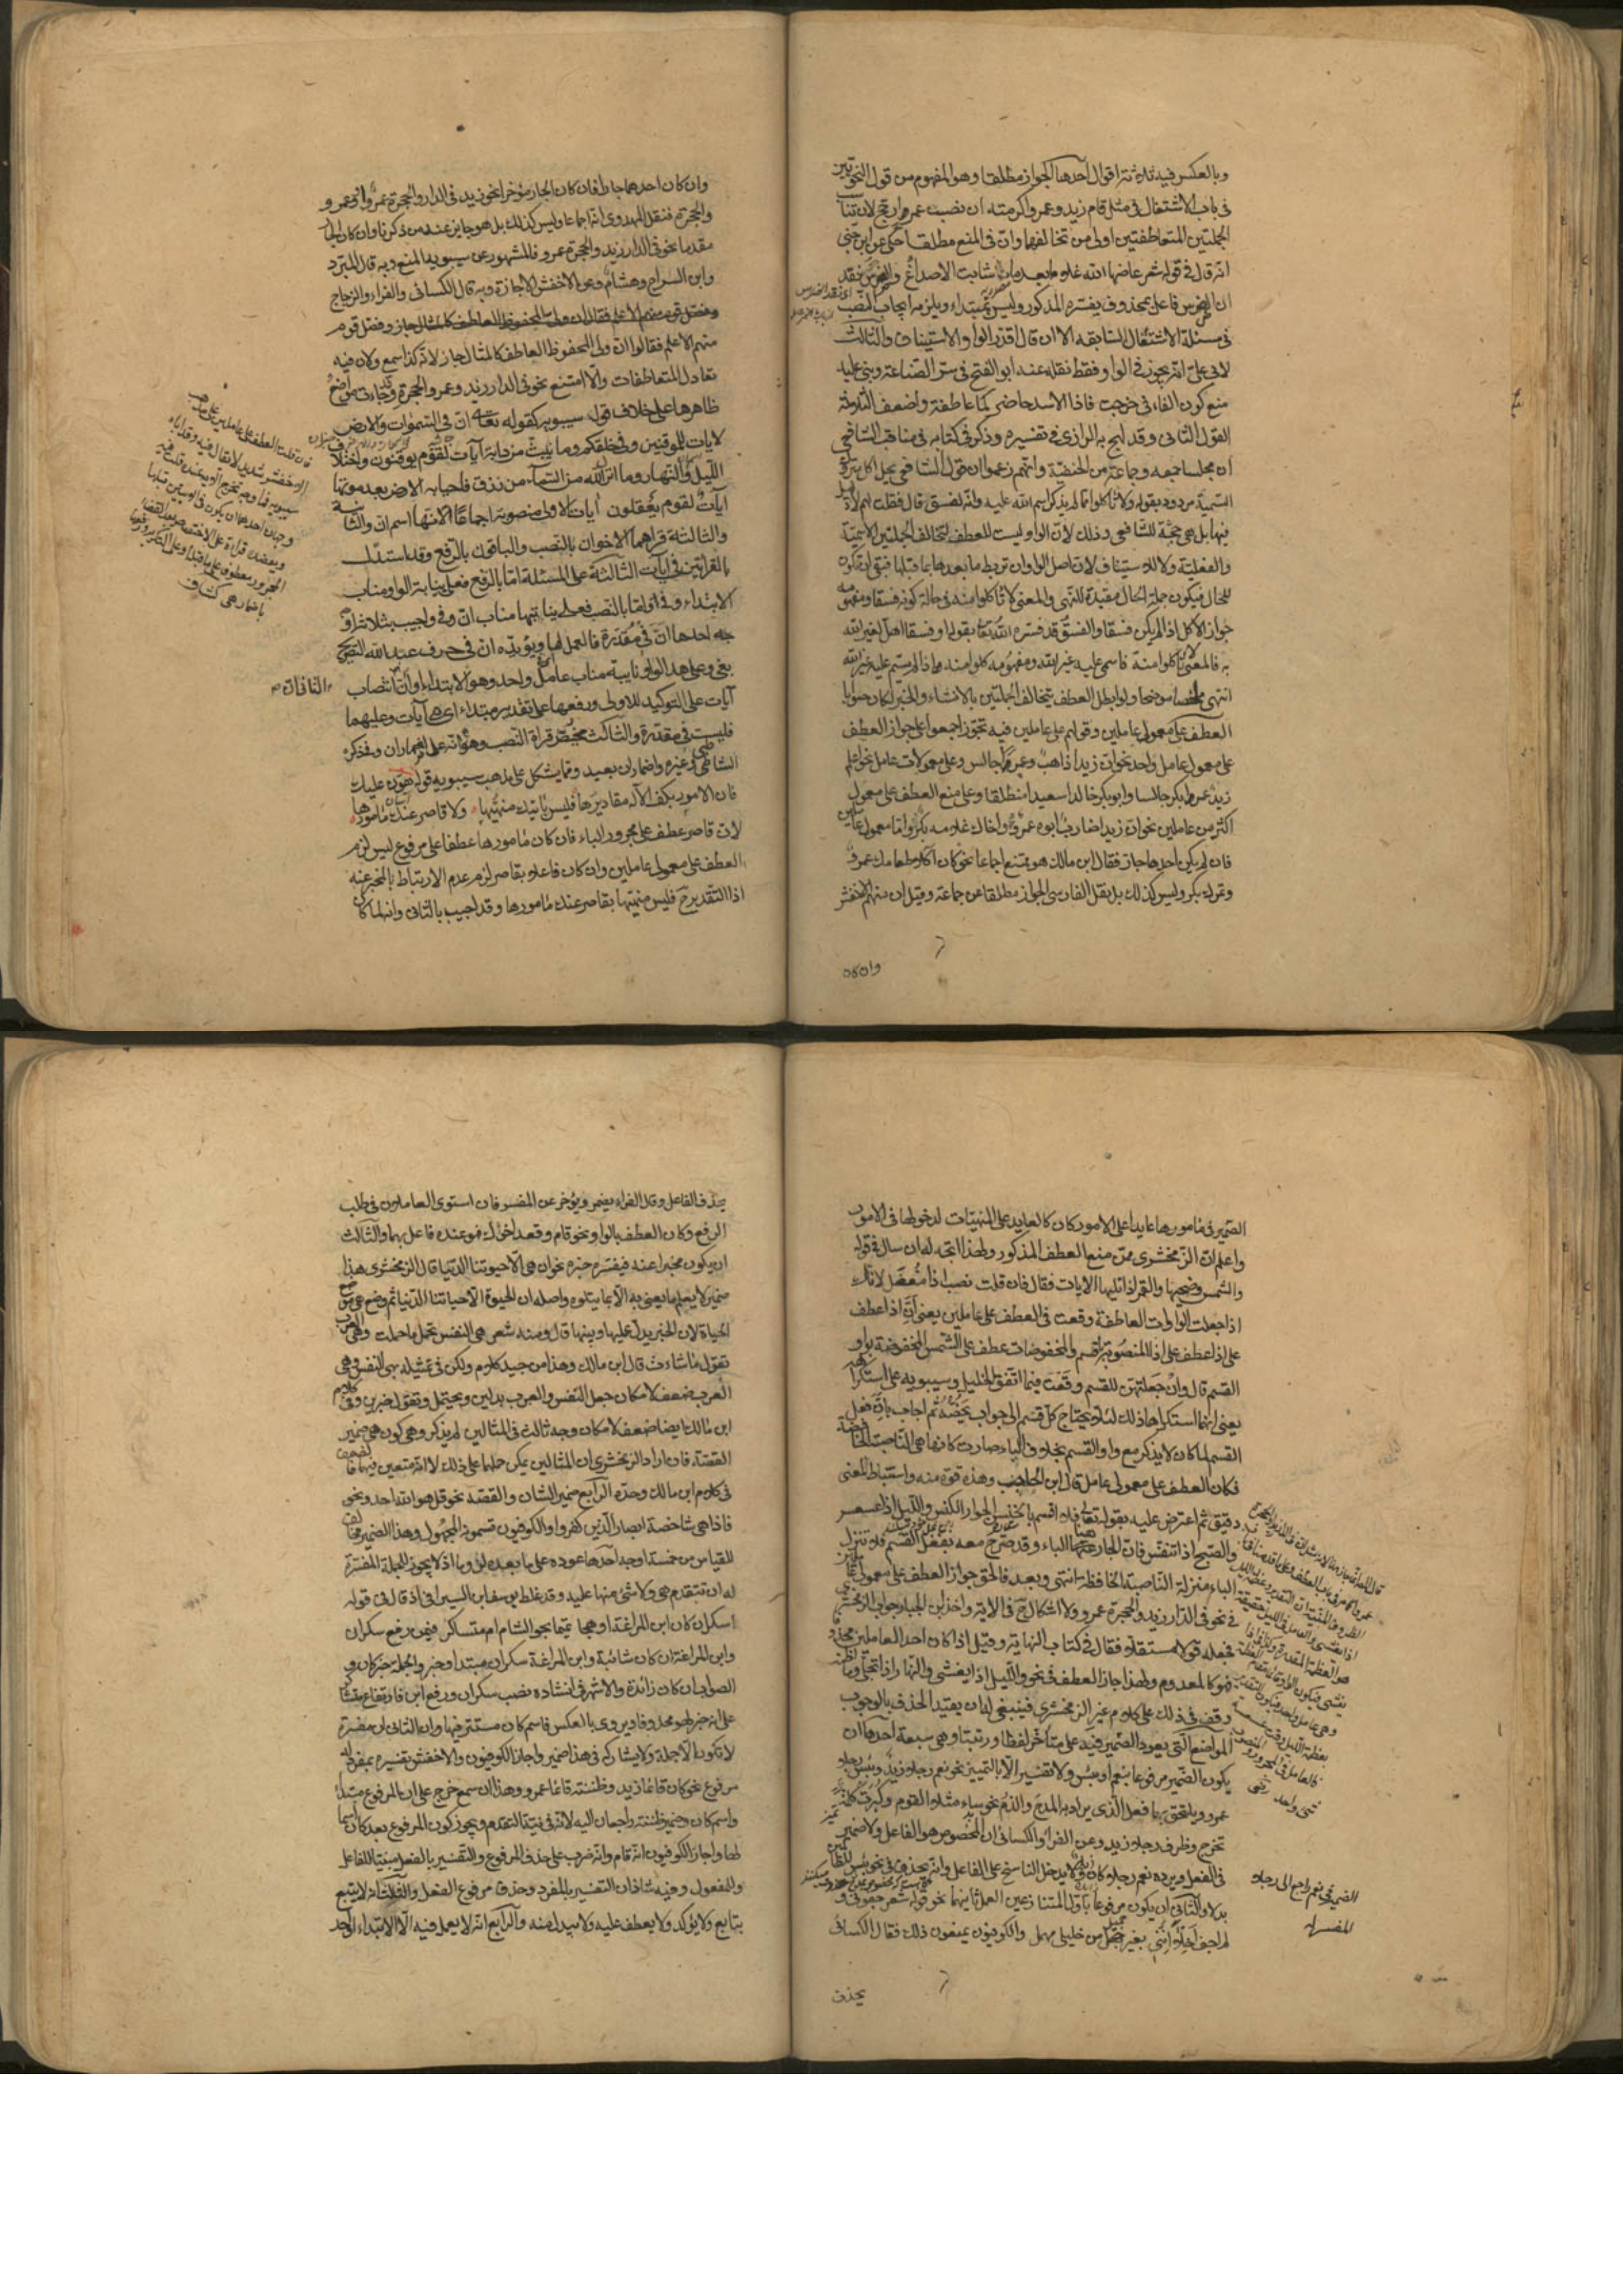 وبالعكس فيه ثلاثة اقوال احدها الجواز مطلقا وهو المفهوم من قول النحويين
فى باب الاشتغال فى مثل قام زيد وعمرو اكرمته ان نصب عمرو ارجح لان تناسب
الجملتين المتعاطفتين اولى من تخالفهما والثانى المنع مطلقا حكى عن ابن جنى
انه قال فى قوله شعر عاضها الله غلاما بعد ما شابت الاصداغ والضرس نقد
ان الضرس فاعل بمحذوف يفسره المذكور وليس بمبتداء ويلزمه ايجاب النصب
فى مسئلة الاشتغال السابقه الا ان قال اقدر الواو للاستيناف والثالث
لابى على انه يجوز فى الواو فقط نقله عنه ابو الفتح فى سر الصناعة وبنى عليه
منع كون الفاء فى خرجت فاذا الاسد حاضر عاطفة واضعف الثلاثة
القول الثانى وقد لهج به الرازى فى تفسيره وذكر فى كتابه فى مناقب الشافعى
ان مجلسا جمعه وجماعة من الحنفية وانهم زعموا ان قول الشافعى يحل اكل متروك
التسمية مردود بقوله ولا تاكلوا مما لم يذكر اسم الله عليه وانه لفسق قال فقلت لهم لا دليل
فيها بل هى حجة للشافعى وذلك لان الواو ليست للعطف لتخالف الجملتين الاسمية
والفعلية ولا للاستيناف لان اصل الواو ان تربط ما بعدها بما قبلها فبقى ان تكون
للحال فيكون جملة الحال مقيدة للنهى والمعنى لا تاكلوا منه فى حالة كونه فسقا ومفهومه
جواز الاكل اذا لم يكن فسقا والفسق قد فسره الله تعالى بقوله او فسقا اهل لغير الله
به فالمعنى لا تاكلوا منه اذا سمى عليه غير الله ومفهومه كلوا منه اذا لم يسم عليه غير الله
انتهى ملخصا موضحا ولو ابطل العطف بتخالف الجملتين بالانشاء والخبر لكان صوابا
العطف على معمولى عاملين وقولهم على عاملين فيه تجوز اجمعوا على جواز العطف
على معمولى عامل واحد نحو ان زيدا ذاهب وعمرا جالس وعلى معمولات عامل نحو اعلم
زيد عمرا بكرا جالسا وابو بكر خالدا سعيدا منطلقا وعلى منع العطف على معمولى
اكثر من عاملين نحو ان زيدا ضارب ابوه عمرو واخاك غلامه بكر واما معمولا عاملين
فان لم يكن احدهما جارا فقال ابن مالك هو ممتنع اجماعا نحو كان اكلا طعامك عمرو
وتمرك بكر وليس كذلك بل نقل الفارسى الجواز مطلقا عن جماعة وقيل ان منهم الاخفش
وان كان
وان كان احدهما جارا فان كان الجار مؤخرا نحو زيد فى الدار والحجرة عمرو او وعمرو
والحجرة فنقل المهدوى انه اجماعا وليس كذلك بل هو جايز عند من ذكرنا وان كان الجار
مقدما نحو فى الدار زيد والحجرة عمرو فالمشهور عن سيبويه المنع وبه قال المبرد
وابن السراج وهشام وعن الاخفش الاجازة وبه قال الكسائى والفراء والزجاج
وفصل قوم
منهم الاعلم فقالوا ان ولى المخفوض العاطف كالمثال جاز لانه كذا سمع ولان فيه
تعادل المتعاطفات والا امتنع نحو فى الدار زيد وعمرو الحجرة وقد جاءت مواضع
ظاهرها على خلاف قول سيبويه كقوله تعالى ان فى السموات والارض
لايات للمومنين وفى خلقكم وما يبث من دابة آيات لقوم يوقنون واختلاف
الليل والنهار وما انزل الله من السماء من رزق فاحيا به الارض بعد موتها
آيات لقوم يعقلون آيات الاولى منصوبة اجماعا لانها اسم ان والثانية
والثالثة قراهما الاخوان بالنصب والباقون بالرفع وقد استدل
بالقراتين فى آيات الثالثة على المسئلة اما بالرفع فعلى نيابة الواو مناب
الابتداء وفى واما بالنصب فعلى نيابتها مناب ان وفى واجيب بثلاثة اوجه
احدها ان فى مقدرة فالعمل لها ويؤيده ان فى حرف عبد الله التصريح
بفى وعلى هذا الواو نايبة مناب عامل واحد وهو الابتداء او ان والثانى ان انتصاب
آيات على التوكيد للاولى ورفعها على تقدير مبتداء اى هى آيات وعليهما
فليست فى مقدرة والثالث يخص قراة النصب وهو انه على اضمار ان وفى ذكره
الشاطبى وغيره واضمار ان بعيد ومما يشكل على مذهب سيبويه قوله هون عليك
فان الامور بكف الاله مقاديرها فليس بآتيك منهيها ولا قاصر عنك مامورها
لان قاصر عطف على مجرور الباء فان كان مامورها عطفا على مرفوع ليس لزم
العطف على معمولى عاملين وان كان فاعلا بقاصر لزم عدم الارتباط بالمخبر عنه
اذ التقدير ح فليس منهيها بقاصر عنك مامورها وقد اجيب بالثانى وانه لما كان
الضمير فى مامورها عايدا على الامور كان كالعايد على المنهيات لدخولها فى الامور
واعلم ان الزمخشرى ممن منع العطف المذكور ولهذا اتجه له ان سال فى قوله
والشمس وضحيها والقمر اذا تليها الايات فقال فان قلت نصب اذا معضل لانك
اذا جعلت الواوات العاطفة وقعت فى العطف على عاملين يعنى ان اذا عطف
على اذا المنصوبة باقسم والمخفوضات عطف على الشمس المخفوضة بواو
القسم قال وان جعلتهن للقسم وقعت فيما اتفق الخليل وسيبويه على استكراهه
يعنى انهما استكراها ذلك لئلا يحتاج كل قسم الى جواب يخصه ثم اجاب بان فعل
القسم لما كان لا يذكر مع واو القسم بخلاف الباء صارت كانها هى الناصبة الخافضة
فكان العطف على معمولى عامل قال ابن الحاجب وهذه قوة منه واستنباط لمعنى
دقيق ثم اعترض عليه بقوله تعالى فلا اقسم بالخنس الجوار الكنس والليل اذا عسعس
والصبح اذا تنفس فان الجار هنا الباء وقد صرح معه بفعل القسم فلا تنزل
الباء منزلة الناصبة الخافظة انتهى وبعد فالحق جواز العطف على معمولى عاملين
فى نحو فى الدار زيد والحجرة عمرو ولا اشكال ح فى الاية واخذ ابن الخباز جواب الزمخشرى
فجعله قولا مستقلا فقال فى كتاب النهاية وقيل اذا كان احد العاملين محذوفا
فهو كالمعدوم ولهذا جاز العطف فى نحو والليل اذا يغشى والنهار اذا تجلى وما اظنه
وقف فى ذلك على كلام غير الزمخشرى فينبغى له ان يقيد الحذف بالوجوب
المواضع التى يعود الضمير فيها على متاخر لفظا ورتبة وهى سبعة احدها ان
يكون الضمير مرفوعا بنعم او بئس ولا تفسير الا بالتمييز نحو نعم رجلا زيد وبئس رجلا
عمرو ويلتحق بهما فعل الذى يراد به المدح والذم نحو ساء مثلا القوم وكبرت كلمة
تخرج وظرف رجلا زيد وعن الفرا والكسائى ان المخصوص هو الفاعل ولا ضمير
فى الفعل ويرده نعم رجلا كان زيد ولا يدخل الناسخ على الفاعل وانه يحذف نحو بئس للظالمين
بدلا والثانى ان يكون مرفوعا باول المتنازعين العمل ثانيهما نحو قوله شعر جفونى و
لم اجف الاخلاء اننى بغير جميل من خليلى مهمل والكوفيون يمنعون ذلك فقال الكسائى
الضمير فى نعم راجع الى رجلا
المفسر له
يحذف
يحذف الفاعل وقال الفراء يضمر ويؤخر عن المفسر فان استوى العاملان فى طلب
الرفع وكان العطف بالواو نحو قام وقعد اخواك فهو عنده فاعل بهما والثالث
ان يكون مخبرا عنه فيفسره خبره نحو ان هى الا حيوتنا الدنيا قال الزمخشرى هذا
ضمير لا يعلم ما يعنى به الا بما يتلوه واصله ان الحيوة الا حياتنا الدنيا ثم وضع هى موضع
الحياة لان الخبر يدل عليها ويبينها قال ومنه شعر هى النفس تحمل ما حملت وهى العرب
تقول ما شاءت قال ابن مالك وهذا من جيد كلامه ولكن فى تمثيله بهى النفس وهى
العرب ضعف لامكان جعل النفس والعرب بدلين وتحمل وتقول خبرين وفى كلام
ابن مالك ايضا ضعف لامكان وجه ثالث فى المثالين لم يذكره وهو كون هى ضمير
القصة فان اراد الزمخشرى ان المثالين يمكن حملهما على ذلك لا انه متعين فيهما فالضعف
فى كلام ابن مالك وحده الرابع ضمير الشان والقصة نحو قل هو الله احد ونحو
فاذا هى شاخصة ابصار الذين كفروا والكوفيون تسمونه المجهول وهذا الضمير مخالف
للقياس من خمسة اوجه احدها عوده على ما بعده لزوما اذ لا يجوز للجملة المفسرة
له ان تتقدم هى ولا شئ منها عليه وقد غلط يوسف ابن السيرافى اذ قال فى قوله
اسكران كان ابن المراغة اذ هجا تميما بجو الشام ام متساكر فيمن رفع سكران
وابن المراغة ان كان شانية وابن المراغة سكران مبتدا وخبر والجملة خبر كان و
الصواب ان كان زائدة والاشهر فى انشاده نصب سكران ورفع ابن فارتفاع متساكر
على انه خبر لهو محذوفا ويروى بالعكس فاسم كان مستتر فيها والثانى ان مفسره
لا تكون الا جملة ولا يشاركه فى هذا ضمير واجاز الكوفيون والاخفش تفسيره بمفرد له
مرفوع نحو كان قائما زيد وظننته قائما عمرو وهذا ان سمع خرج على ان المرفوع مبتدا
واسم كان وضمير ظننته راجعان اليه لانه فى نية التقدم ويجوز كون المرفوع بعد كان اسما
لها واجاز الكوفيون انه قام وانه ضرب على حذف المرفوع والتفسير بالفعل مبنيا للفاعل
وللمفعول وفيه شاذان التفسير بالمفرد وحذف مرفوع الفعل والثالث انه لا يتبع
بتابع ولا يؤكد ولا يعطف عليه ولا يبدل منه والرابع انه لا يعمل فيه الا الابتداء او احد